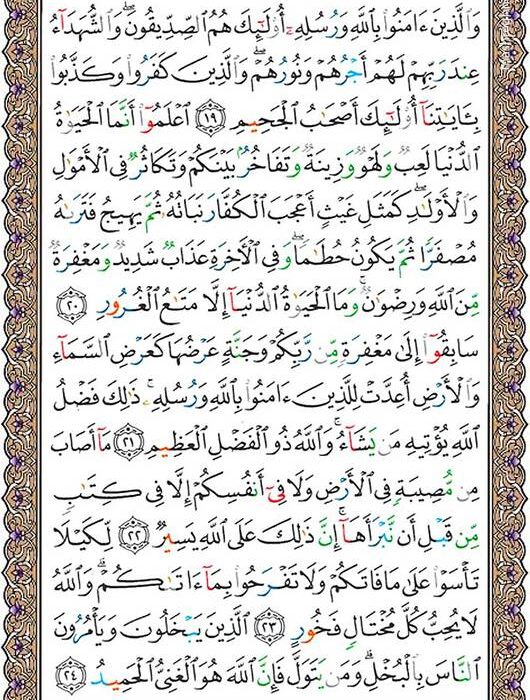 وَالَّذِينَ ءَامَنُوا۟ بِاللَّهِ وَرُسُلِهِۦٓ أُو۟لَٰٓئِكَ هُمُ الصِّدِّيقُونَ ۖ وَالشُّهَدَآءُ
عِندَ رَبِّهِمْ لَهُمْ أَجْرُهُمْ وَنُورُهُمْ ۖ وَالَّذِينَ كَفَرُوا۟ وَكَذَّبُوا۟
بِـَٔايَٰتِنَآ أُو۟لَٰٓئِكَ أَصْحَٰبُ الْجَحِيمِ ﴿١٩﴾ اعْلَمُوٓا۟ أَنَّمَا الْحَيَوٰةُ
الدُّنْيَا لَعِبٌ وَلَهْوٌ وَزِينَةٌ وَتَفَاخُرٌۢ بَيْنَكُمْ وَتَكَاثُرٌ فِى الْأَمْوَٰلِ
وَالْأَوْلَٰدِ ۖ كَمَثَلِ غَيْثٍ أَعْجَبَ الْكُفَّارَ نَبَاتُهُۥ ثُمَّ يَهِيجُ فَتَرَىٰهُ
مُصْفَرًّا ثُمَّ يَكُونُ حُطَٰمًا ۖ وَفِى الْـَٔاخِرَةِ عَذَابٌ شَدِيدٌ وَمَغْفِرَةٌ
مِّنَ اللَّهِ وَرِضْوَٰنٌ ۚ وَمَا الْحَيَوٰةُ الدُّنْيَآ إِلَّا مَتَٰعُ الْغُرُورِ ﴿٢٠﴾
سَابِقُوٓا۟ إِلَىٰ مَغْفِرَةٍ مِّن رَّبِّكُمْ وَجَنَّةٍ عَرْضُهَا كَعَرْضِ السَّمَآءِ
وَالْأَرْضِ أُعِدَّتْ لِلَّذِينَ ءَامَنُوا۟ بِاللَّهِ وَرُسُلِهِۦ ۚ ذَٰلِكَ فَضْلُ
اللَّهِ يُؤْتِيهِ مَن يَشَآءُ ۚ وَاللَّهُ ذُو الْفَضْلِ الْعَظِيمِ ﴿٢١﴾ مَآ أَصَابَ
مِن مُّصِيبَةٍ فِى الْأَرْضِ وَلَا فِىٓ أَنفُسِكُمْ إِلَّا فِى كِتَٰبٍ
مِّن قَبْلِ أَن نَّبْرَأَهَآ ۚ إِنَّ ذَٰلِكَ عَلَى اللَّهِ يَسِيرٌ ﴿٢٢﴾ لِّكَيْلَا
تَأْسَوْا۟ عَلَىٰ مَا فَاتَكُمْ وَلَا تَفْرَحُوا۟ بِمَآ ءَاتَىٰكُمْ ۗ وَاللَّهُ
لَا يُحِبُّ كُلَّ مُخْتَالٍ فَخُورٍ ﴿٢٣﴾ الَّذِينَ يَبْخَلُونَ وَيَأْمُرُونَ
النَّاسَ بِالْبُخْلِ ۗ وَمَن يَتَوَلَّ فَإِنَّ اللَّهَ هُوَ الْغَنِىُّ الْحَمِيدُ ﴿٢٤﴾